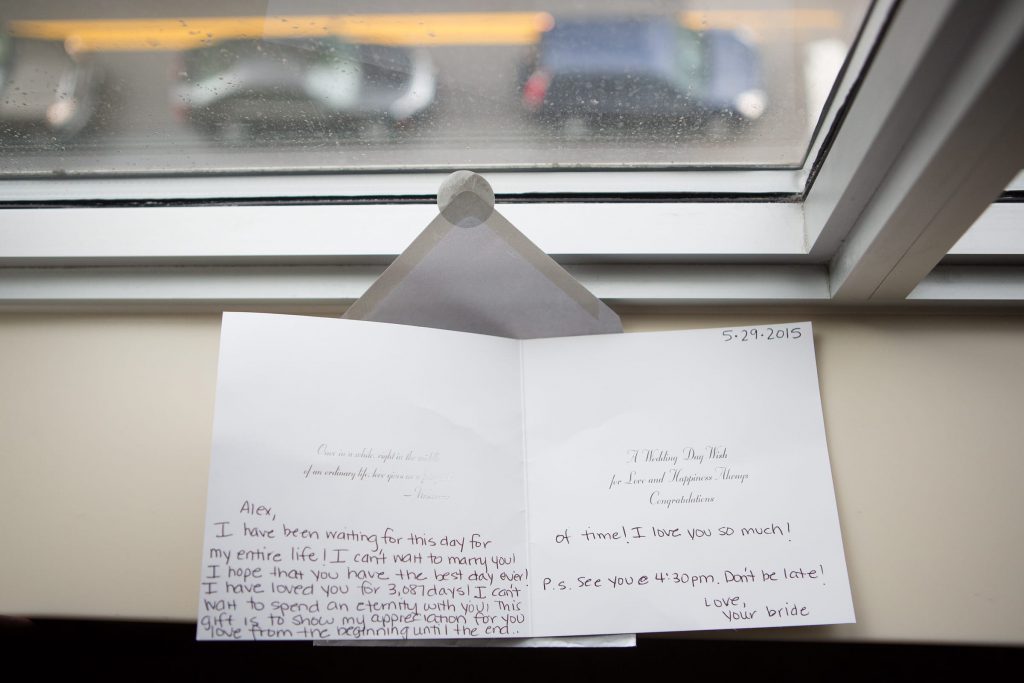 Once in a while, right in the middle
of an ordinary life, love gives us a
Alex,
I have been waiting for this day for
my entire life! I can't wait to marry you!
I hope that you have the best day ever!
I have loved you for 3,087 days! I can't
wait to spend an eternity with you! This
gift is to show my appreciation for you
love from the beginning until the end..
5.29.2015
A Wedding Day Wish
for Love and Happiness Always
Congratulations
of time! I love you so much!
P.S. See you @ 4:30pm. Don't be late!
Love,
your bride